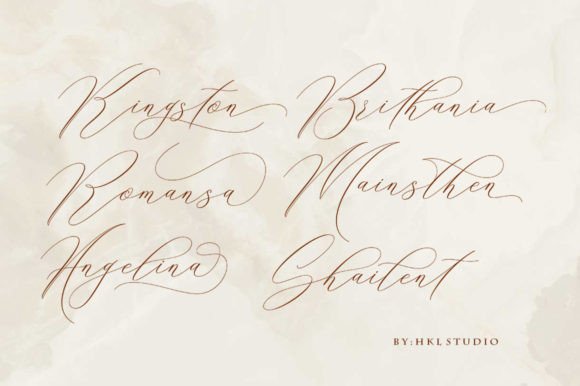 Kingston Brithania
Romansa Mainsthen
Angelina Ghailent
BY:HKL STUDIO